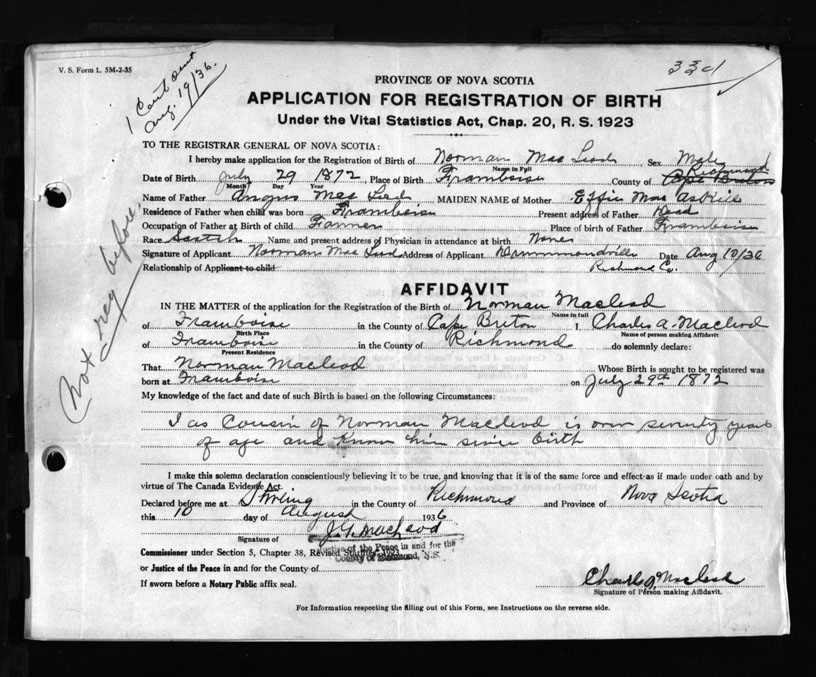 V. S. Form 1. 5M-2-35
1 Cent sent
Aug. 19/36.
PROVINCE OF NOVA SCOTIA
APPLICATION FOR REGISTRATION OF BIRTH
Under the Vital Statistics Act, Chap. 20, R. S. 1923
TO THE REGISTRAR GENERAL OF NOVA SCOTIA:
I hereby make application for the Registration of Birth of Norman Mac Leod Sex Male
Name in Full
Richmond
Date of Birth July 29 1872, Place of Birth Framboise County of Cape Breton
Month Day Year
Name of Father Angus Mac Leod MAIDEN NAME of Mother Effie Mac Askill
Residence of Father when child was born Framboise Present address of Father Dead
Occupation of Father at Birth of child Farmer Place of birth of Father Framboise
Race Scotch Name and present address of Physician in attendance at birth None
Signature of Applicant Norman Mac Leod Address of Applicant Drummondville Date Aug 10/36
Relationship of Applicant to child Richmond Co.
Not reg before.
AFFIDAVIT
IN THE MATTER of the application for the Registration of the Birth of Norman Macleod
Name in full
of Framboise in the County of Cape Breton I, Charles A. Macleod
Birth Place Name of person making Affidavit
of Framboise in the County of Richmond do solemnly declare:
Present Residence
That Norman Macleod Whose Birth is sought to be registered was
born at Framboise on July 29th 1872
My knowledge of the fact and date of such Birth is based on the following Circumstances:
I as Cousin of Norman Macleod is over seventy years
of age and know him since birth
I make this solemn declaration conscientiously believing it to be true, and knowing that it is of the same force and effect as if made under oath and by
virtue of The Canada Evidence Act.
Declared before me at Stirling in the County of Richmond and Province of Nova Scotia
this 10 day of August 1936
Signature of J. G. MacLeod
of the Peace in and for the
Commissioner under Section 5, Chapter 38, Revised
County of Richmond, N.S.
or Justice of the Peace in and for the County of
If sworn before a Notary Public affix seal.
Charles A. Macleod
Signature of Person making Affidavit.
For Information respecting the filling out of this Form, see Instructions on the reverse side.